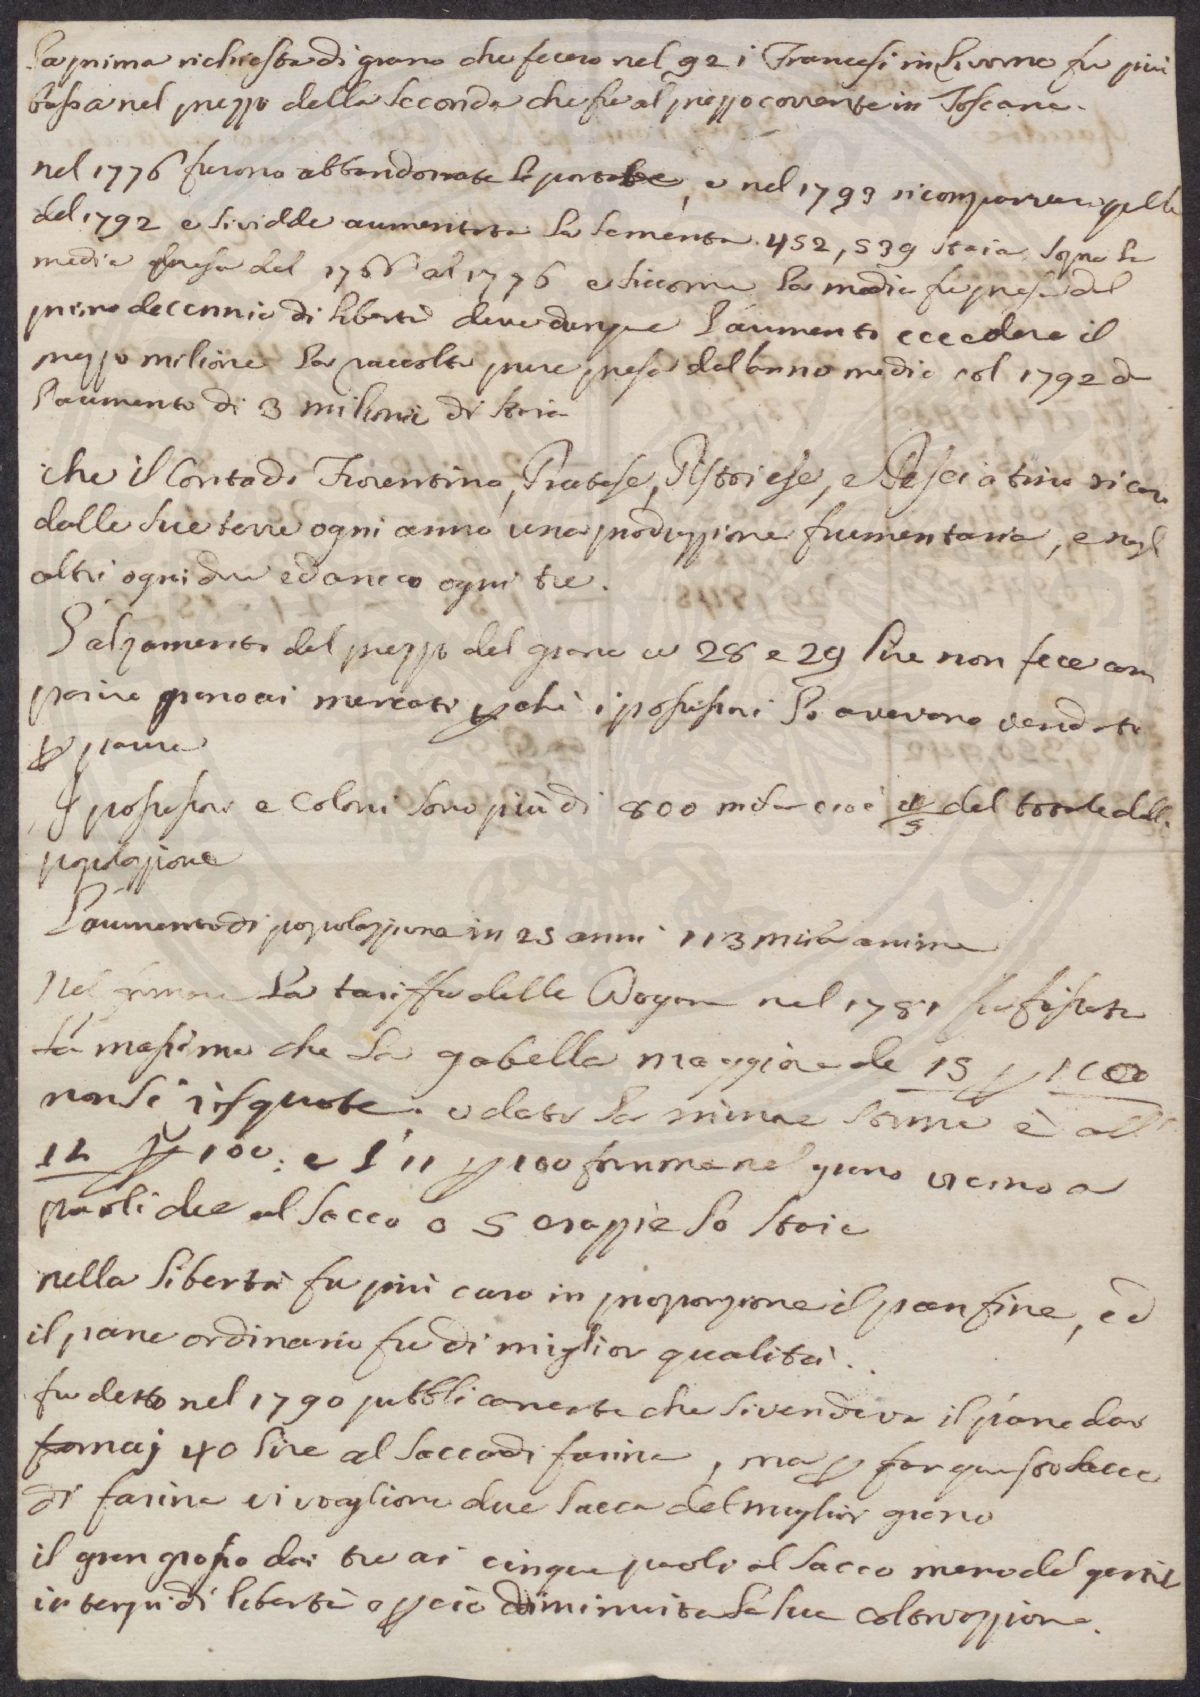 La prima richiesta di grano che fecero nel 92 i Francesi in Livorno fu più
bassa nel prezzo della seconda che fu al prezzo corrente in Toscana.
nel 1776 furono abbandonate le portate, e nel 1793 ricomparvero quelle
del 1792 e si vidde aumentata la sementa 452,539 staia sopra la
media presa dal 1766 al 1776 e siccome la media fu presa del
primo decennio di libertà deve dunque l'aumento eccedere il
mezzo milione la raccolta pure presa dall'anno medio col 1792 da
l'aumento di 3 milioni di staia
che il Contado Fiorentino, Pratese, Pistoiese, e Pesciatino ricava
dalle sue terre ogni anno una produzzione frumentaria, e negl
altri ogni due ed anco ogni tre.
L'alzamento del prezzo del grano a 28 e 29 lire non fece com
parire grano ai mercati pchè i possessori lo avevano venduto
p paura
I possessori e coloni sono più di 800 mila cioè 4/5 del totale dell
popolazzione
L'aumento di popolazzione in 25 anni 113 mila anime
Nel la tariffa delle Dogane nel 1781 fu fissata
la massima che la gabella maggiore de 15 p 100
non si risquote. e data la minore è all
12 p 100: e l'11 p 100 forma nel grano vicino a
paoli due al sacco o 5 crazzie lo staio
nella libertà fu più caro in proporzione il pan fine, ed
il pane ordinario fu di miglior qualità.
fu detto nel 1790 pubblicamente che si vendeva il pane dai
fornaj 40 lire al sacco di farina, ma p far questo sacco
di farina vi vogliono due sacca del miglior grano
il gran grosso dai tre ai cinque paoli al sacco meno del gentil
in tempi di libertà e p ciò diminuita la sua coltivazzione.